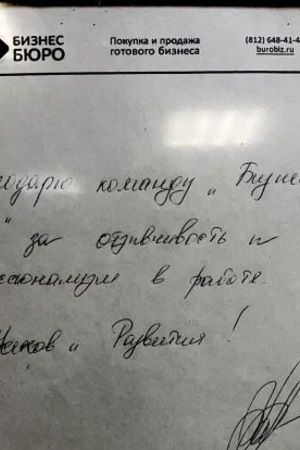 БИЗНЕС
БЮРО
Покупка и продажа
готового бизнеса
(812) 648-41-4
burobiz.ru
одарю команду „
" за отзывчивость и
ссионализм в работе.
и Развития!